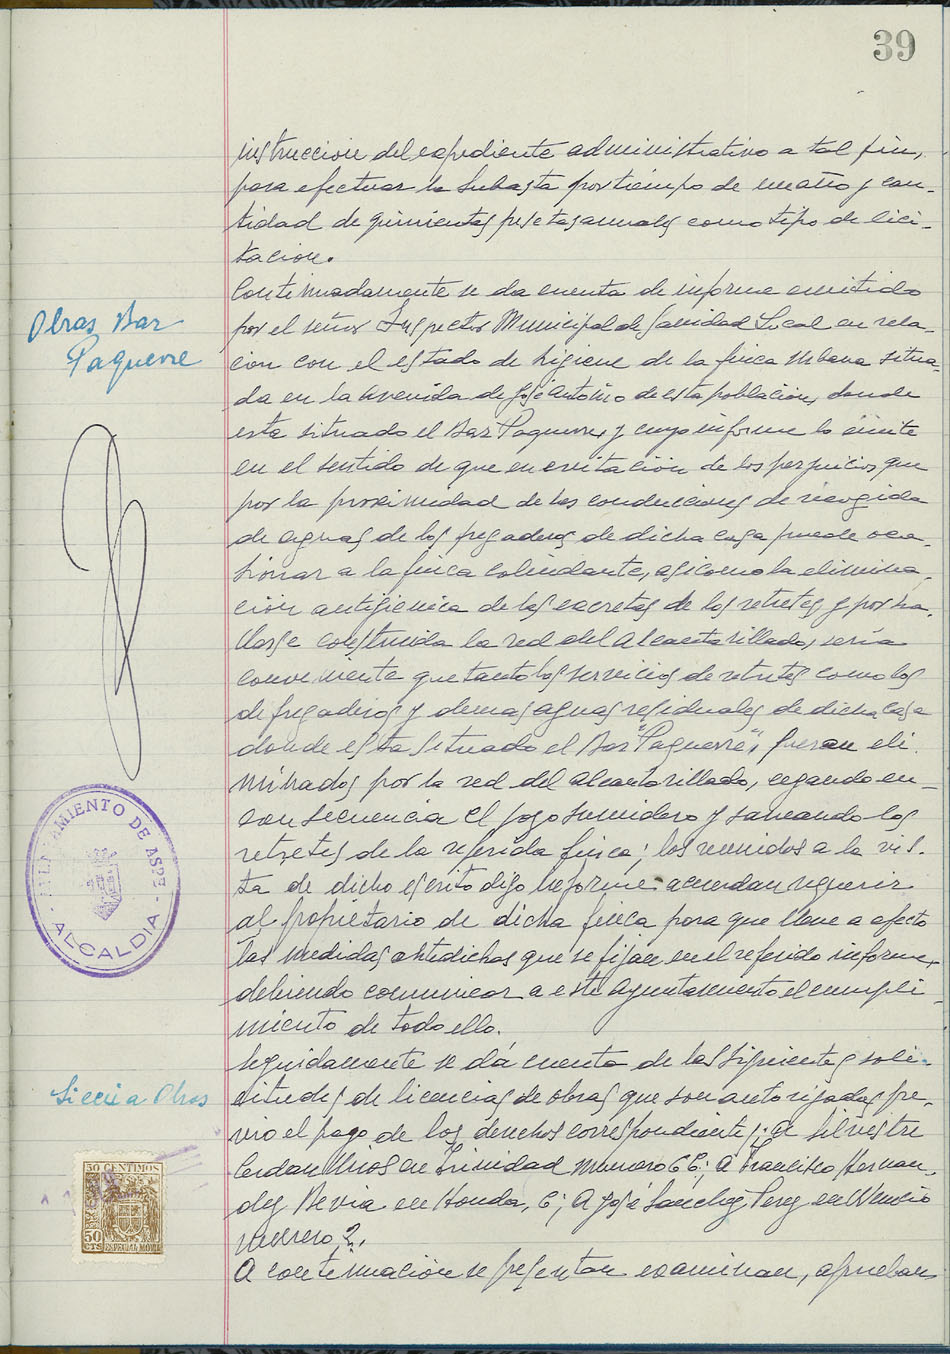 39
instruccion del expediente administrativo a tal fin,
para efectuar la subasta por tiempo de un año y can-
tidad de quinientas pesetas anuales como tipo de lici-
tacion.
Obras Bar
Paquerre
Continuadamente se da cuenta de informe emitido
por el señor Inspector Municipal de Sanidad Local en rela-
cion con el estado de higiene de la finca urbana situa-
da en la Avenida de José Antonio de esta poblacion, donde
esta situado el Bar Paquerre, y cuyo informe lo emite
en el sentido de que en evitación de los perjuicios que
por la proximidad de las conducciones de recogida
de aguas de los fregaderos de dicha casa puede oca-
sionar a la finca colindante, asi como la elimina-
ción antigienica de las excretas de los retretes y por ha-
llarse construida la red del alcantarillado, seria
conveniente que tanto los servicios de retretes como los
de fregaderos y demas aguas residuales de dicha casa
donde esta situado el Bar "Paquerre", fueran eli-
minados por la red del alcantarillado, cegando en
consecuencia el pozo sumidero y saneando los
retretes de la referida finca; los reunidos a la vis-
ta de dicho escrito digo informe acuerdan requerir
al propietario de dicha finca para que lleve a efecto
las medidas antedichas que se fijan en el referido informe,
debiendo comunicar a este Ayuntamiento el cumpli-
miento de todo ello.
AYUNTAMIENTO DE ASPE
- ALCALDIA -
Licencia Obras
Seguidamente se dá cuenta de las siguientes soli-
citudes de licencias de obras que son autorizadas pre-
vio el pago de los derechos correspondientes: a Silvestre
Cerdan Mires en Trinidad numero 66; A Francisco Hernan-
dez Bevia en Honda, 6; A José Sanchez Perez en
numero 2.
A continuación se presentan examinan, aprueban
50 CENTIMOS
50
CTS ESPECIAL MOVIL